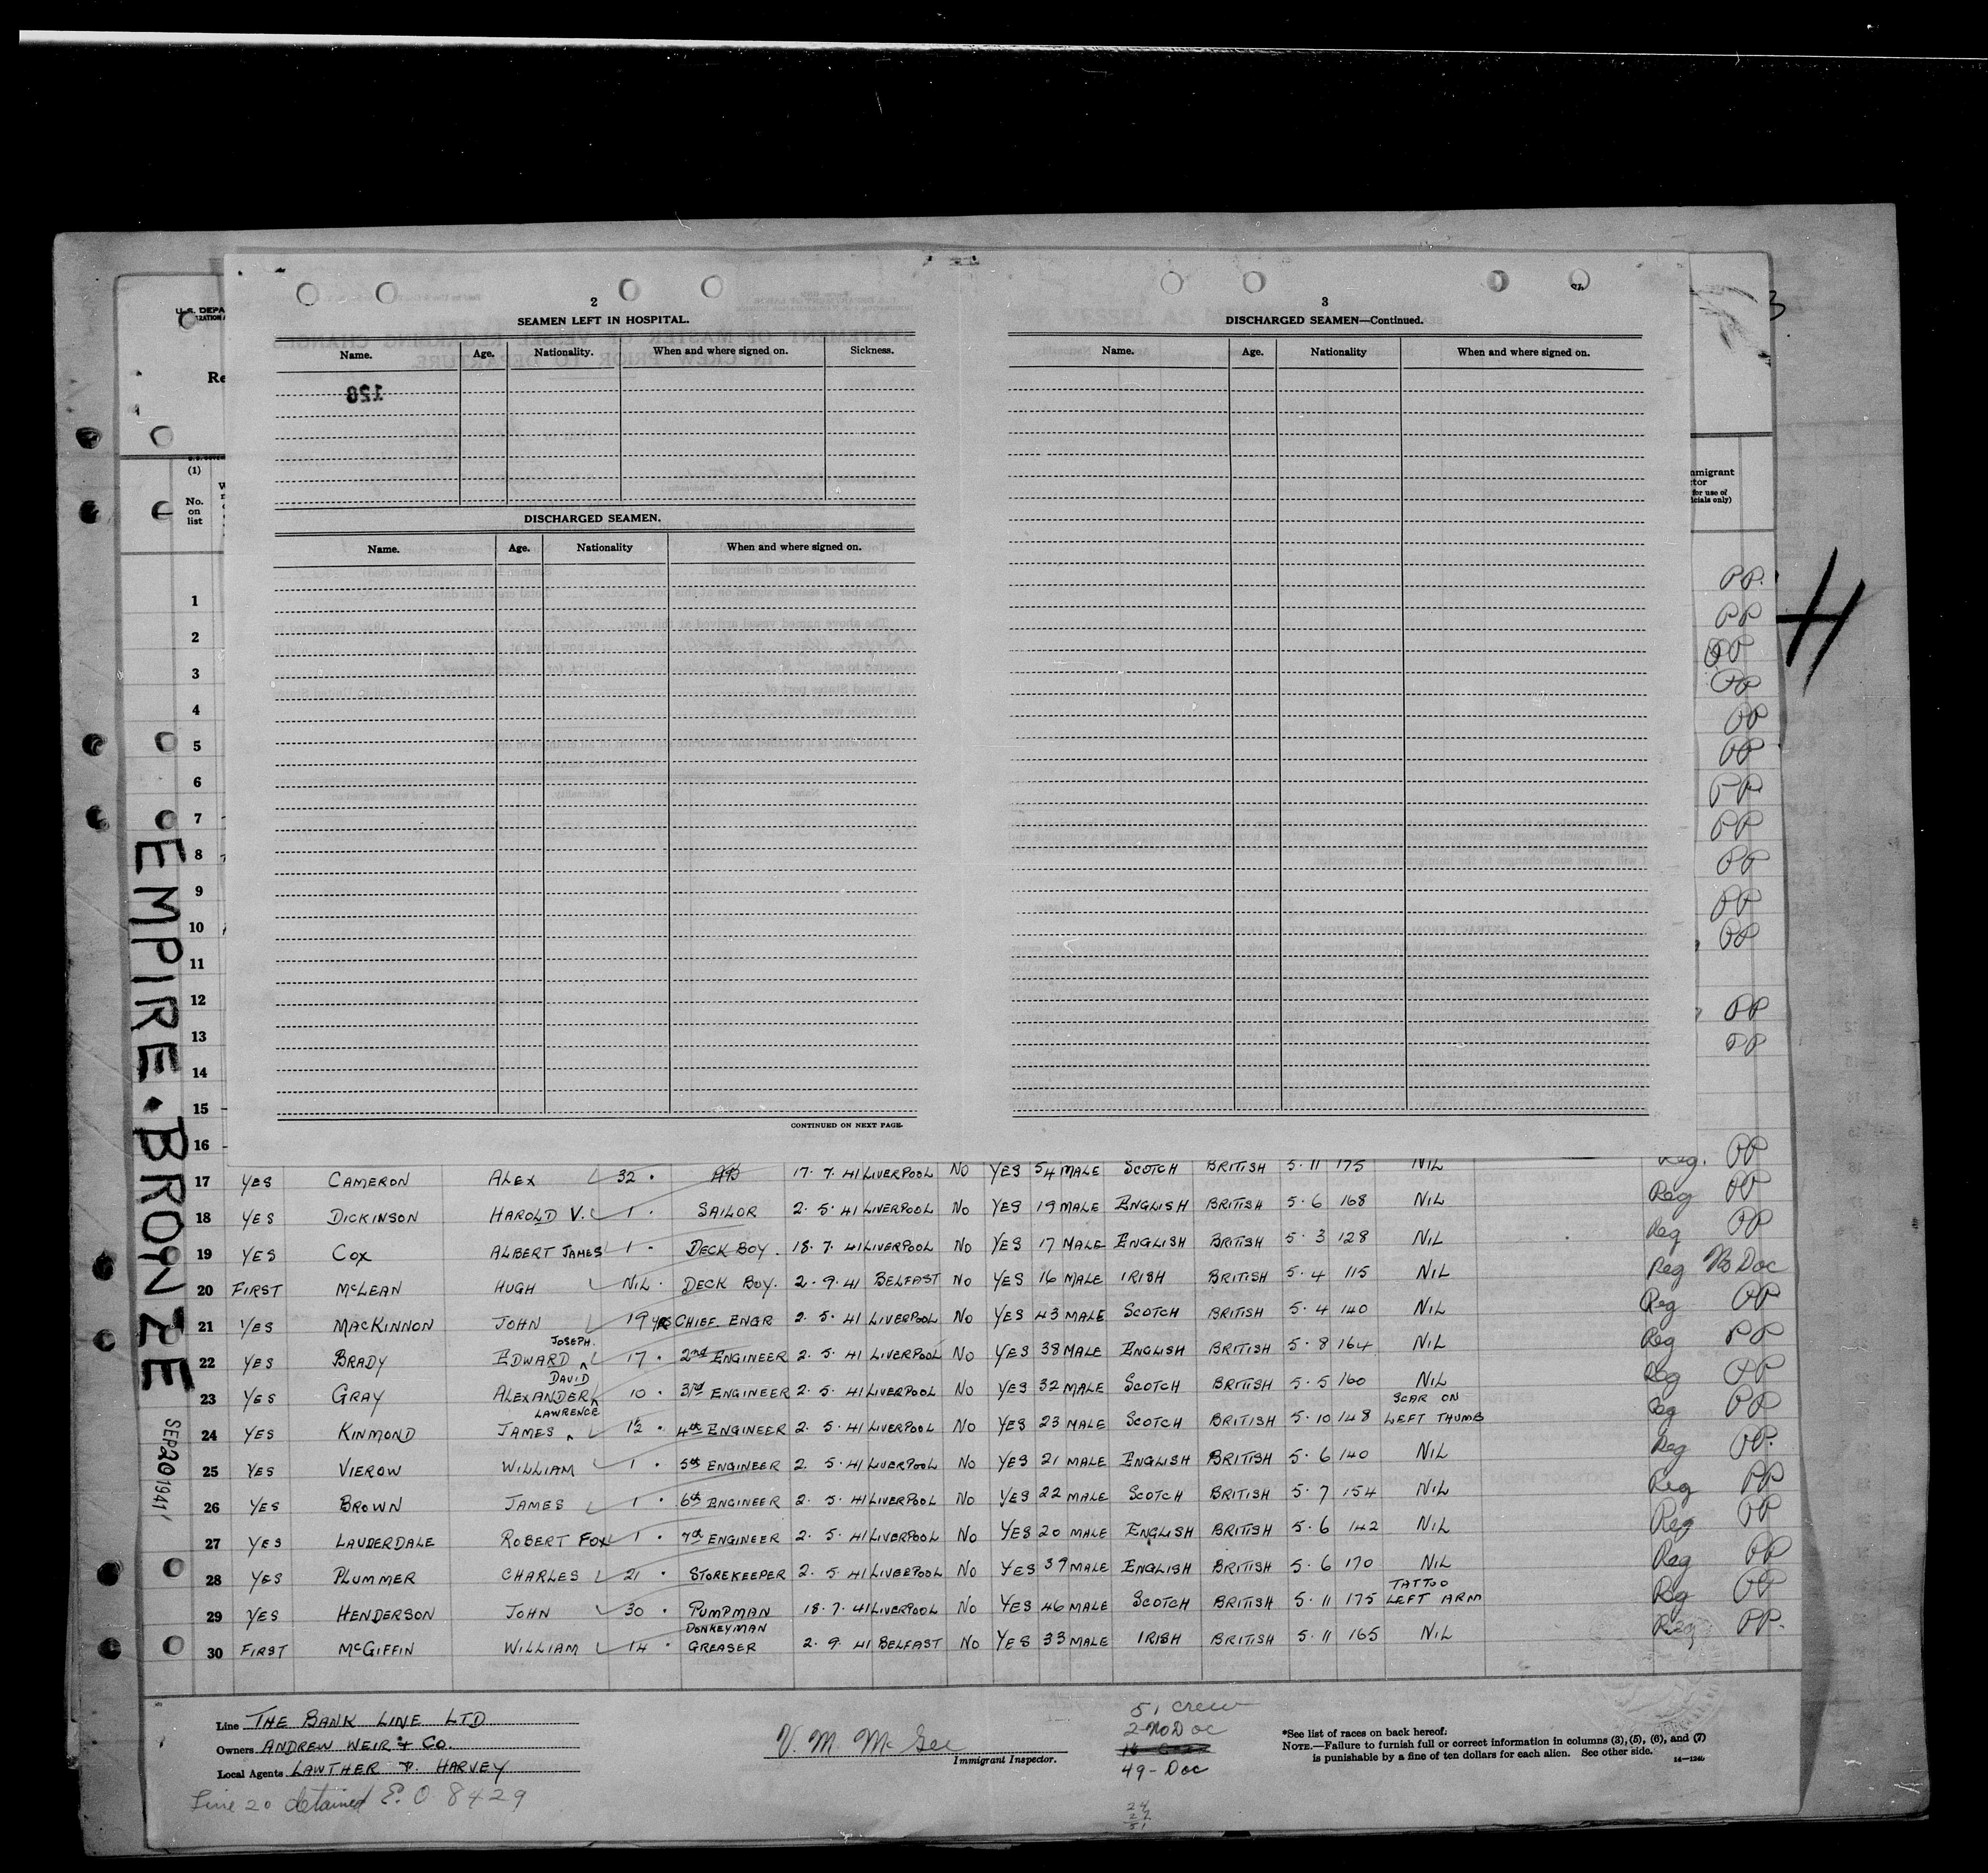 2
SEAMEN LEFT IN HOSPITAL.
Name. Age. Nationality. When and where signed on. Sickness.
128
DISCHARGED SEAMEN.
Name. Age. Nationality When and where signed on.
CONTINUED ON NEXT PAGE.
3
DISCHARGED SEAMEN—Continued.
Name. Age. Nationality When and where signed on.
U.S. DEPA
(1)
No. on list
for use of
1 PP.
2 PP
3 PP
4 PP
5 PP
6 PP
7 PP
8 PP
9 PP
10 PP
11 PP
12
13 PP
14 PP
15
16
EMPIRE·BRONZE
SEP 20 1941
17 YES CAMERON ALEX 32 · AB 17·7·41 LIVERPOOL NO YES 54 MALE SCOTCH BRITISH 5·11 175 NIL Reg. PP
18 YES DICKINSON HAROLD V. 1 · SAILOR 2·5·41 LIVERPOOL NO YES 19 MALE ENGLISH BRITISH 5·6 168 NIL Reg PP
19 YES COX ALBERT JAMES 1 · DECK BOY. 18·7·41 LIVERPOOL NO YES 17 MALE ENGLISH BRITISH 5·3 128 NIL Reg PP
20 FIRST McLEAN HUGH NIL · DECK BOY. 2·9·41 BELFAST NO YES 16 MALE IRISH BRITISH 5·4 115 NIL Reg No Doc
21 YES MACKINNON JOHN 19 YRS CHIEF ENGR 2·5·41 LIVERPOOL NO YES 43 MALE SCOTCH BRITISH 5·4 140 NIL Reg PP
22 YES BRADY EDWARD JOSEPH. 17 · 2nd ENGINEER 2·5·41 LIVERPOOL NO YES 38 MALE ENGLISH BRITISH 5·8 164 NIL Reg PP
23 YES GRAY ALEXANDER DAVID 10 · 3rd ENGINEER 2·5·41 LIVERPOOL NO YES 32 MALE SCOTCH BRITISH 5·5 160 NIL Reg PP
24 YES KINMOND JAMES LAWRENCE 1½ · 4th ENGINEER 2·5·41 LIVERPOOL NO YES 23 MALE SCOTCH BRITISH 5·10 148 SCAR ON LEFT THUMB Reg PP
25 YES VIEROW WILLIAM 1 · 5th ENGINEER 2·5·41 LIVERPOOL NO YES 21 MALE ENGLISH BRITISH 5·6 140 NIL Reg PP.
26 YES BROWN JAMES 1 · 6th ENGINEER 2·5·41 LIVERPOOL NO YES 22 MALE SCOTCH BRITISH 5·7 154 NIL Reg PP
27 YES LAUDERDALE ROBERT FOX 1 · 7th ENGINEER 2·5·41 LIVERPOOL NO YES 20 MALE ENGLISH BRITISH 5·6 142 NIL Reg PP
28 YES PLUMMER CHARLES 21 · STOREKEEPER 2·5·41 LIVERPOOL NO YES 37 MALE ENGLISH BRITISH 5·6 170 NIL Reg PP
29 YES HENDERSON JOHN 30 · PUMPMAN 18·7·41 LIVERPOOL NO YES 46 MALE SCOTCH BRITISH 5·11 175 TATTOO LEFT ARM Reg PP
30 FIRST McGIFFIN WILLIAM 14 · DONKEYMAN GREASER 2·9·41 BELFAST NO YES 33 MALE IRISH BRITISH 5·11 165 NIL Reg PP.
Line THE BANK LINE LTD
Owners ANDREW WEIR & CO.
Local Agents LAWTHER & HARVEY
Line 20 detained E.O. 8429
V. M. McGee
Immigrant Inspector.
51 crew
2-No Doc
49-Doc
24
27
51
*See list of races on back hereof.
NOTE.—Failure to furnish full or correct information in columns (3), (5), (6), and (7)
is punishable by a fine of ten dollars for each alien. See other side.
14—1240